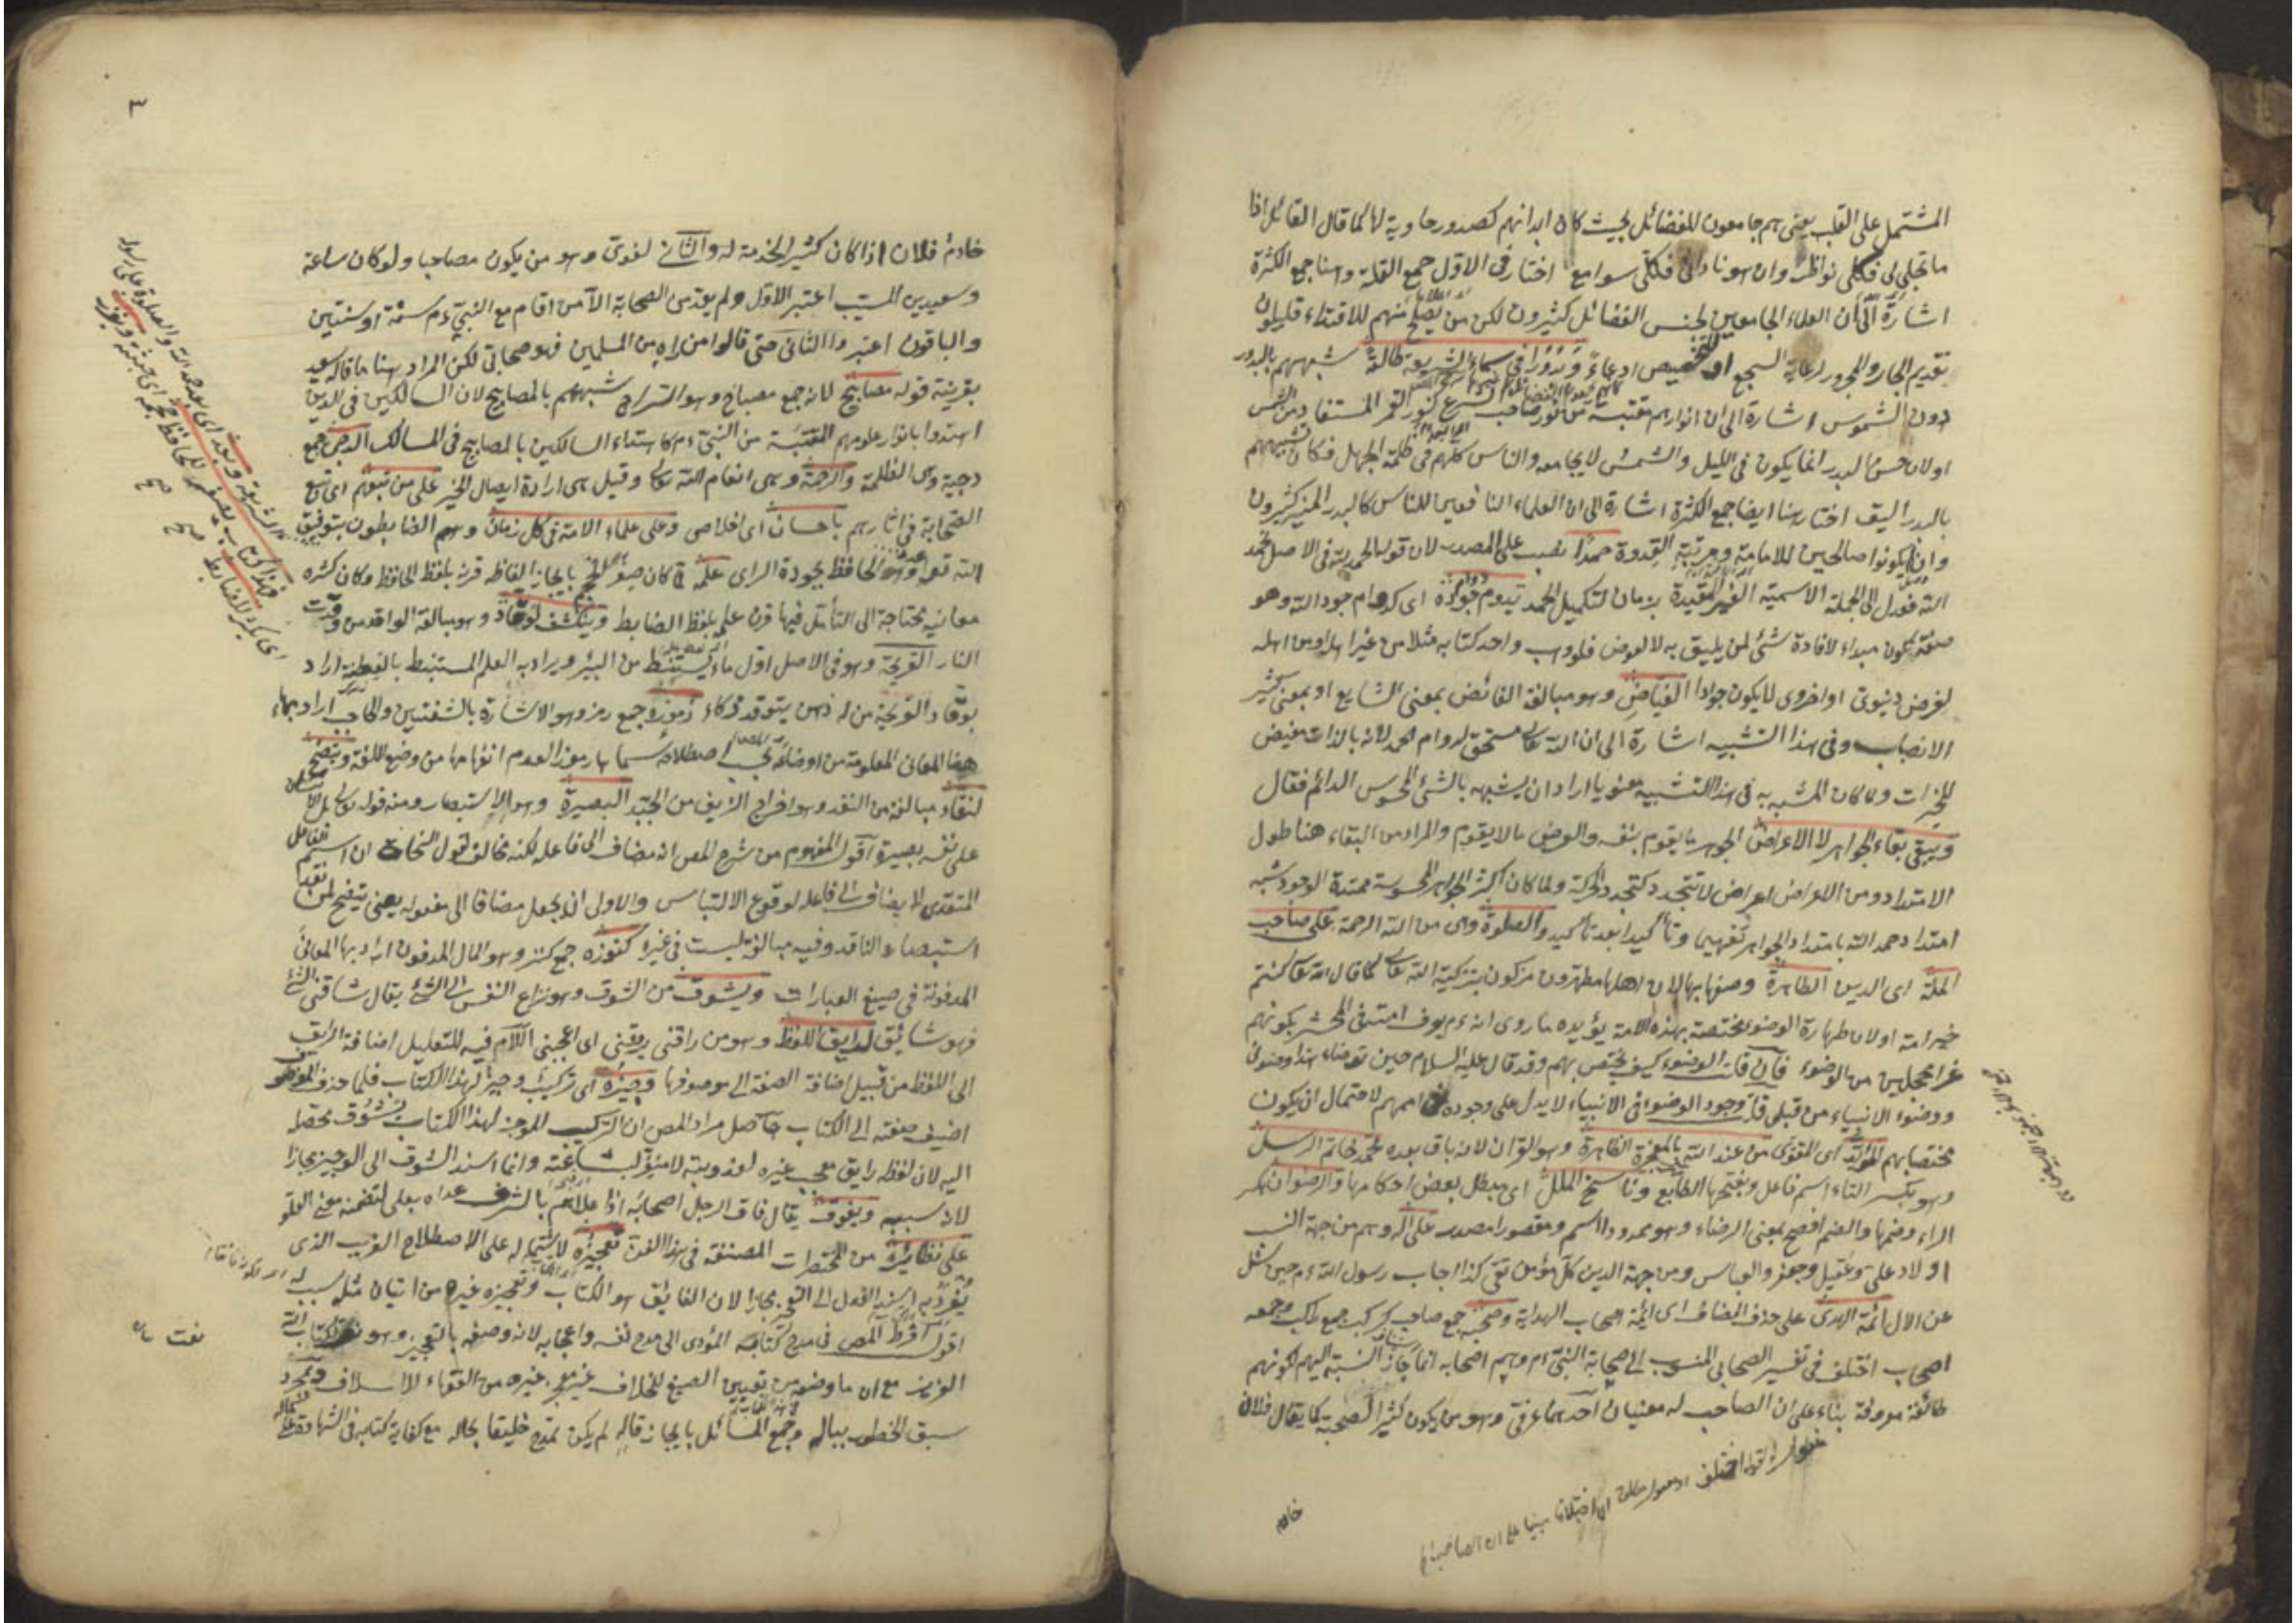 المشتمل على القلب يعنى هم جامعون للفضائل بحيث كان ابدانهم كصدور حاوية لها كما قال القائل اذا
ما تجلى لى فكلى نواظر وان هو نادانى فكلى سوامع اختار فى الاول جمع القلة وهنا جمع الكثرة
اشارة الى ان العلماء الجامعين لجنس الفضائل كثيرون لكن من يصلح منهم للاقتداء قليلون
تقديم الجار والمجرور لرعاية السجع او للتخصيص ادعاء وبدورا فى سماء الشريعة طالعة شبههم بالبدور
دون الشموس اشارة الى ان انوارهم مقتبسة من نور صاحب الشرع كنور القمر المستفاد من الشمس
او لان حسن البدر انما يكون فى الليل والشمس لا يجامعه والناس كلهم فى ظلمة الجهل فكان تشبيههم
بالبدر اليق اختار هنا ايضا جمع الكثرة اشارة الى ان العلماء النافعين للناس كالبدر المنير كثيرون
وان لم يكونوا صالحين للامامة ومرتبة القدوة حمدا نصب على المصدر لان قوله الحمد لله فى الاصل نحمد
الله فعدل الى الجملة الاسمية الغير المقيدة بزمان لتكميل الحمد يدوم جوده اى كدوام جود الله وهو
صفة يكون مبداء لافادة شئ لمن يليق به لا لعوض فلو وهب واحد كتابه مثلا من غير اهله او من اهله
لغرض دنيوى او اخروى لا يكون جوادا الفياض وهو مبالغة الفائض بمعنى الشايع او بمعنى كثير
الانصباب وفى هذا التشبيه اشارة الى ان الله تعالى مستحق لدوام الحمد لانه بالذات مفيض
للخيرات ولما كان المشبه به فى هذا التشبيه معنويا اراد ان يشبهه بالشئ المحسوس الدائم فقال
ويبقى بقاء الجواهر لا الاعراض الجوهر ما يقوم بنفسه والعرض ما لا يقوم والمراد من البقاء هنا طول
الامتداد ومن الاعراض اعراض لا تتجدد كتجدد الحركة ولما كان اكثر الجواهر المحسوسة ممتدة الوجود شبه
امتداد حمد الله بامتداد الجواهر تفهيما وتأكيدا بعد تأكيد والصلوة وهى من الله الرحمة على صاحب
الملة اى الدين الطاهرة وصفها بها لان اهلها مطهرون مزكون بتزكية الله تعالى كما قال الله تعالى كنتم
خير امة او لان طهارة الوضوء مختصة بهذه الامة يؤيده ما روى انه عم يعرف امته فى المحشر بكونهم
غرا محجلين من الوضوء فان قلت الوضوء كيف يختص بهم وقد قال عليه السلام حين توضأ هذا وضوئى
ووضوء الانبياء من قبلى قلت وجود الوضوء فى الانبياء لا يدل على وجوده فى اممهم لاحتمال ان يكون
مختصا بهم المؤيد اى المقوى من عند الله بالمعجزة الظاهرة وهو القرآن لانه باق بعده محمد خاتم الرسل
وهو بكسر التاء اسم فاعل وبفتحها الطابع وناسخ الملل اى مبطل بعض احكامها والرضوان بكسر
الراء وضمها والضم افصح بمعنى الرضاء وهو ممدودا اسم ومقصورا مصدر على اله وهم من جهة النسب
اولاد على وعقيل وجعفر والعباس ومن جهة الدين كل مؤمن تقى كذا اجاب رسول الله عم حين سئل
عن الال ائمة الهدى على حذف المضاف اى ائمة اصحاب الهداية وصحبه جمع صاحب كركب جمع راكب وجمعه
اصحاب اختلف فى تفسير الصحابى المنسوب الى صحابة النبى عم وهم اصحابه انما جاز النسبة اليهم لكونهم
طائفة معروفة بناء على ان الصاحب له معنيان احدهما عرفى وهو من يكون كثير الصحبة كما يقال فلان
خادم
٣
خادم فلان اذا كان كثير الخدمة له والثانى لغوى وهو من يكون مصاحبا ولو كان ساعة
وسعيد بن المسيب اعتبر الاول ولم يعد من الصحابة الا من اقام مع النبى عم سنة او سنتين
والباقون اعتبروا الثانى حتى قالوا من راه من المسلمين فهو صحابى لكن المراد هنا ما قاله سعيد
بقرينة قوله مصابيح لانه جمع مصباح وهو السراج شبههم بالمصابيح لان السالكين فى الدين
اهتدوا بانوار علومهم المقتبسة من النبى عم كاهتداء السالكين بالمصابيح فى المسالك الدجى جمع
دجية وهى الظلمة والرحمة وهى انعام الله تعالى وقيل هى ارادة ايصال الخير على من تبعهم اى تبع
الصحابة فى اثارهم باحسان اى اخلاص وعلى علماء الامة فى كل زمان وهم الضابطون بتوفيق
معانيه محتاجة الى التأمل فيها قرن علمه بلفظ الضابط وينكشف لوقاد وهو مبالغة الواقد من وقدت
النار القريحة وهو فى الاصل اول ماء يستنبط من البئر ويراد به العلم المستنبط بالفطنة اراد
بوقاد القريحة من له ذهن يتوقد ذكاء رموزه جمع رمز وهو الاشارة بالشفتين والحاجب اراد بها
هنا المعانى المعلومة من اوضاعه اصطلاحه سماها رموزا لعدم انفهامها من وضع اللغة ويتضح
لنقاد مبالغة من النقد وهو اخراج الزيف من الجيد البصيرة وهو الاستبصار ومنه قوله تعالى بل الانسان
على نفسه بصيرة اقول المفهوم من شرح المص انه مضاف الى فاعله لكنه مخالف لقول النحاة ان اسم الفاعل
المتعدى لا يضاف الى فاعله لوقوع الالتباس والاولى ان يجعل مضافا الى مفعوله يعنى يتضح لمن نقد
استبصاره والناقد وفيه مبالغة ليست فى غيره كنوزه جمع كنز وهو المال المدفون اراد بها المعانى
المدفونة فى صيغ العبارات ويشوق من الشوق وهو نزاع النفس الى الشئ يقال شاقنى الشئ
فهو شائق لرايق اللفظ وهو من راقنى يروقنى اى اعجبنى اللام فيه للتعليل اضافة الرايق
الى اللفظ من قبيل اضافة الصفة الى موصوفها وجيزه اى تركيب وجيز لهذا الكتاب فلما حذف الموصوف
اضيف صفته الى الكتاب حاصل مراد المص ان التركيب الموجز لهذا الكتاب يشوق محصله
اليه لان لفظه رايق معجب غيره لعذوبته لا منفر لبشاعته وانما اسند الشوق الى الوجيز مجازا
لانه سببه ويفوق يقال فاق الرجل اصحابه اذا علاهم بالشرف عداه بعلى لتضمنه معنى العلو
على نظائره من المختصرات المصنفة فى هذا الفن تعجيزه لاشتماله على الاصطلاح الغريب الذى
تفرد به اسند الفعل الى التعجيز مجازا لان الفايق هو الكتاب وتعجيزه غيره من اتيان مثله سبب له
اقول افرط المص فى مدح كتابه المؤدى الى مدح نفسه واعجابه لانه وصفه بالتعجيز وهو نعت كتاب الله
العزيز مع ان ما وضعه من تعيين الصيغ للخلاف غير معجز غيره من الفقهاء للاسلاف ومجرد
سبق الخطور بباله وجمع المسائل بايجاز قاله لم يكن تمدح خليقا بحاله مع كفاية كتابه فى الشهادة على كماله